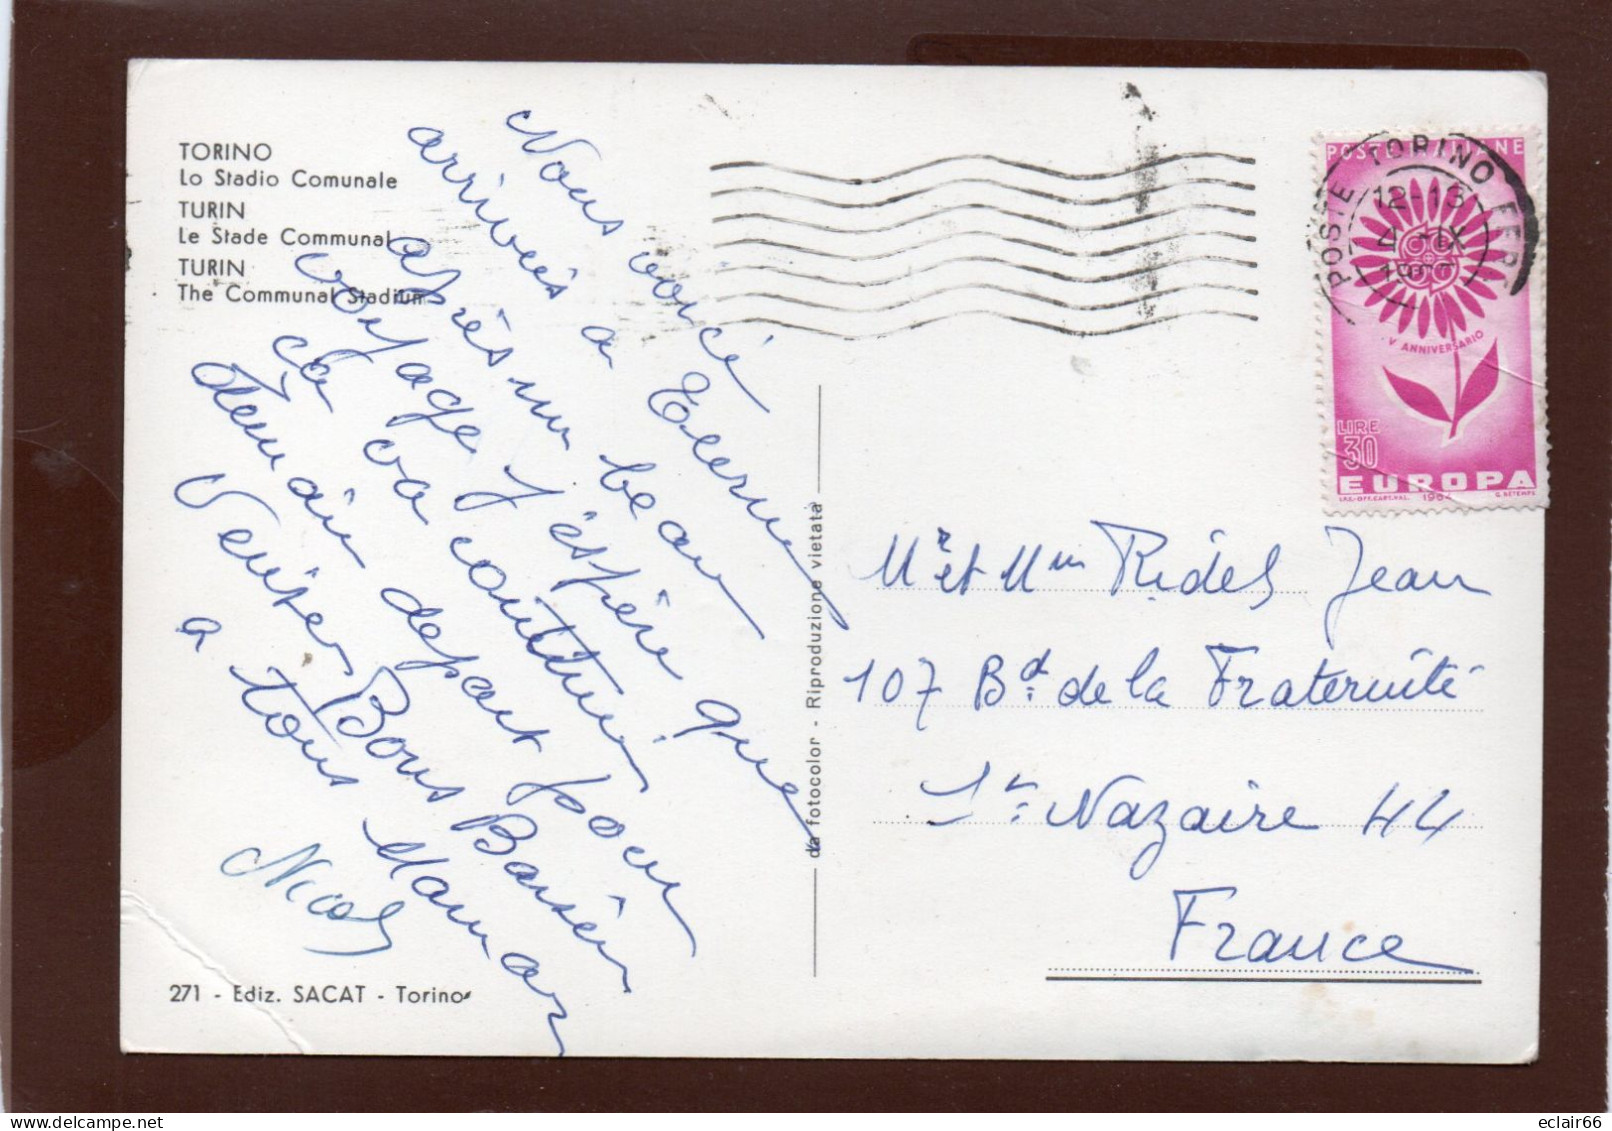 TORINO
Lo Stadio Comunale
TURIN
Le Stade Communal
TURIN
The Communal Stadium
Nous voici
arrivés a
après un beau
voyage J'éspère que
ça va continuer
demain depart pour
Venise Bons Baisers
a tous Maman
Nicole
271 - Ediz. SACAT - Torino
da fotocolor - Riproduzione vietata
POSTE ITALIANE
POSTE TORINO FERR
12-13
4 - IX
V ANNIVERSARIO
LIRE
30
EUROPA
I.P.S.-OFF.CART.VAL. 1964 G. BETEMPS
Mr et Mme Ridel Jean
107 Bd de la Fraternité
St Nazaire 44
France
eclair66